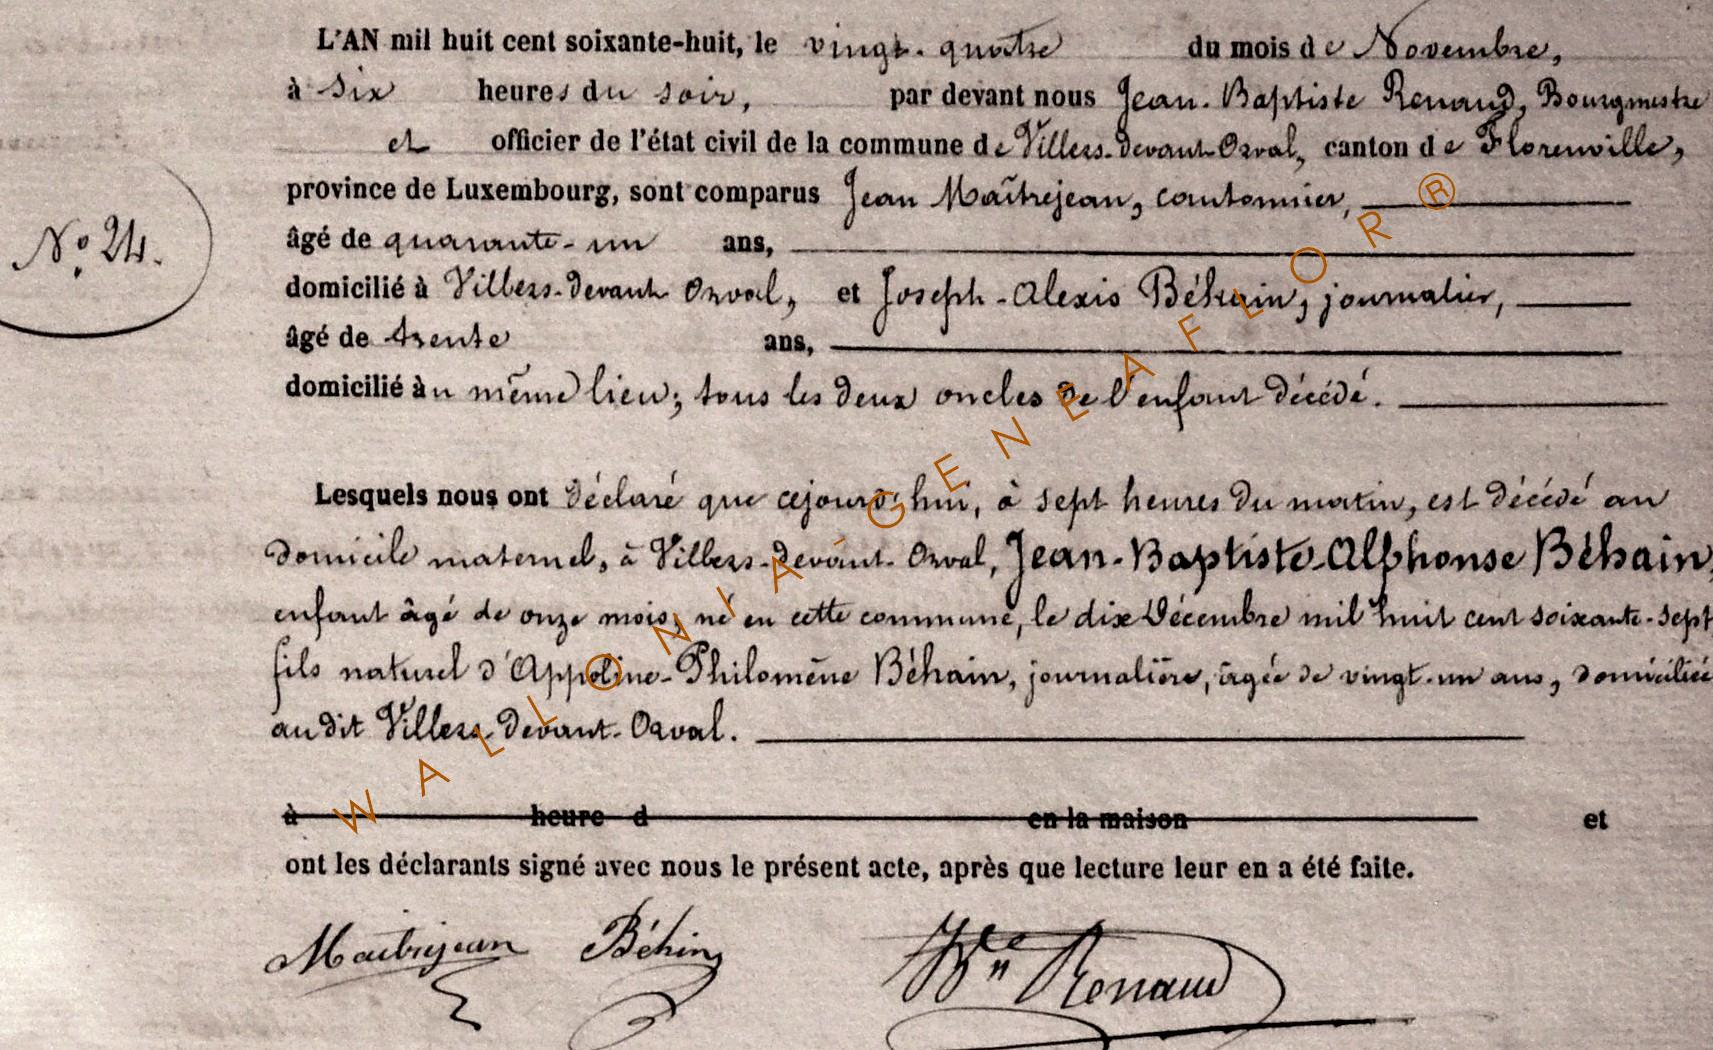 L'AN mil huit cent soixante-huit, le vingt-quatre du mois de Novembre,
à six heures du soir, par devant nous Jean-Baptiste Renaud, Bourgmestre
et officier de l'état civil de la commune de Villers-devant-Orval, canton de Florenville,
province de Luxembourg, sont comparus Jean Maîtrejean, cantonnier,
N° 24.
âgé de quarante-un ans,
domicilié à Villers-devant Orval, et Joseph-Alexis Béhain, journalier,
âgé de trente ans,
domicilié au même lieu; tous les deux oncles de l'enfant décédé.
Lesquels nous ont déclaré que cejourd'hui, à sept heures du matin, est décédé au
domicile maternel, à Villers-devant-Orval, Jean-Baptiste-Alphonse Béhain,
enfant âgé de onze mois, né en cette commune, le dix Décembre mil huit cent soixante-sept
fils naturel d'Appoline-Philomène Béhain, journalière, âgée de vingt-un ans, domiciliée
au dit Villers-devant-Orval.
à heure d en la maison et
ont les déclarants signé avec nous le présent acte, après que lecture leur en a été faite.
Maitrejean Béhin Renaud
WALLONIA GENEAFLOR ®